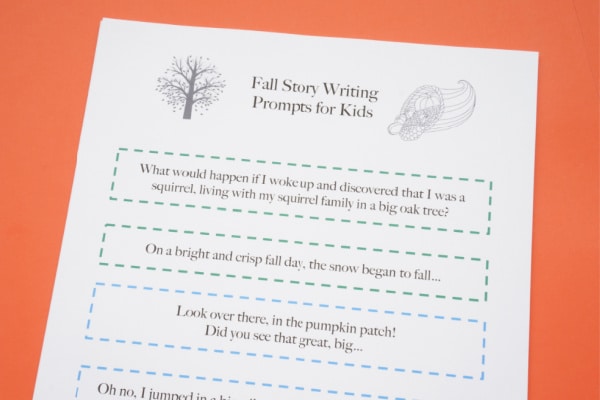 Fall Story Writing
Prompts for Kids
What would happen if I woke up and discovered that I was a
squirrel, living with my squirrel family in a big oak tree?
On a bright and crisp fall day, the snow began to fall...
Look over there, in the pumpkin patch!
Did you see that great, big...
Oh no, I jumped in a